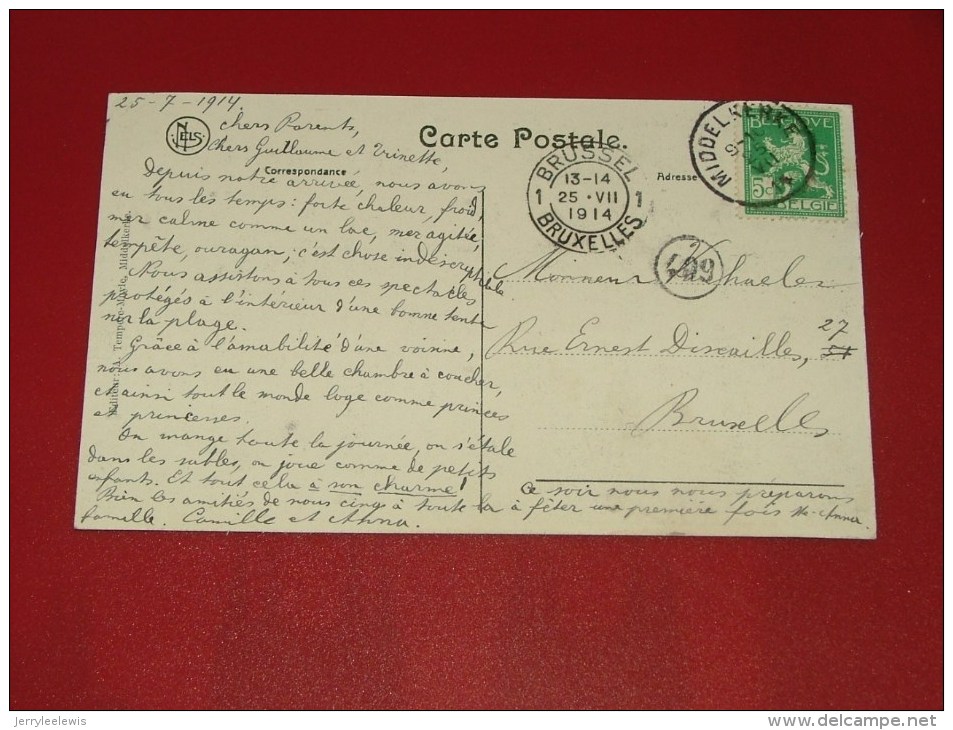 25-7-1914.
NELS
Chers Parents,
Chers Guillaume et Trinette,
Carte Postale.
Correspondance
Adresse
Depuis notre arrivée, nous avons
eu tous les temps: forte chaleur, froid,
mer calme comme un lac, mer agitée,
tempête, ouragan; c'est chose indescriptible
Nous assistons à tous ces spectacles
protégés à l'intérieur d'une bonne tente
sur la plage.
Grâce à l'amabilité d'une voisine,
nous avons eu une belle chambre à coucher,
et ainsi tout le monde loge comme princes
et princesses.
On mange toute la journée, on s'étale
dans les sables, on joue comme de petits
enfants. Et tout cela à son charme!
Bien les amitiés de nous cinq à toute la
famille. Camille et Anna.
Ce soir nous nous préparons
à fêter une première fois Ste-Anna.
BRUSSEL
13-14
1 25 · VII 1
1914
BRUXELLES
MIDDELKERKE
BELGIQUE
5c
BELGIE
607
Monsieur
27
Rue Ernest Discailles,
Bruxelles
Editeur: Middelkerke
jerryleelewis
www.delcampe.net